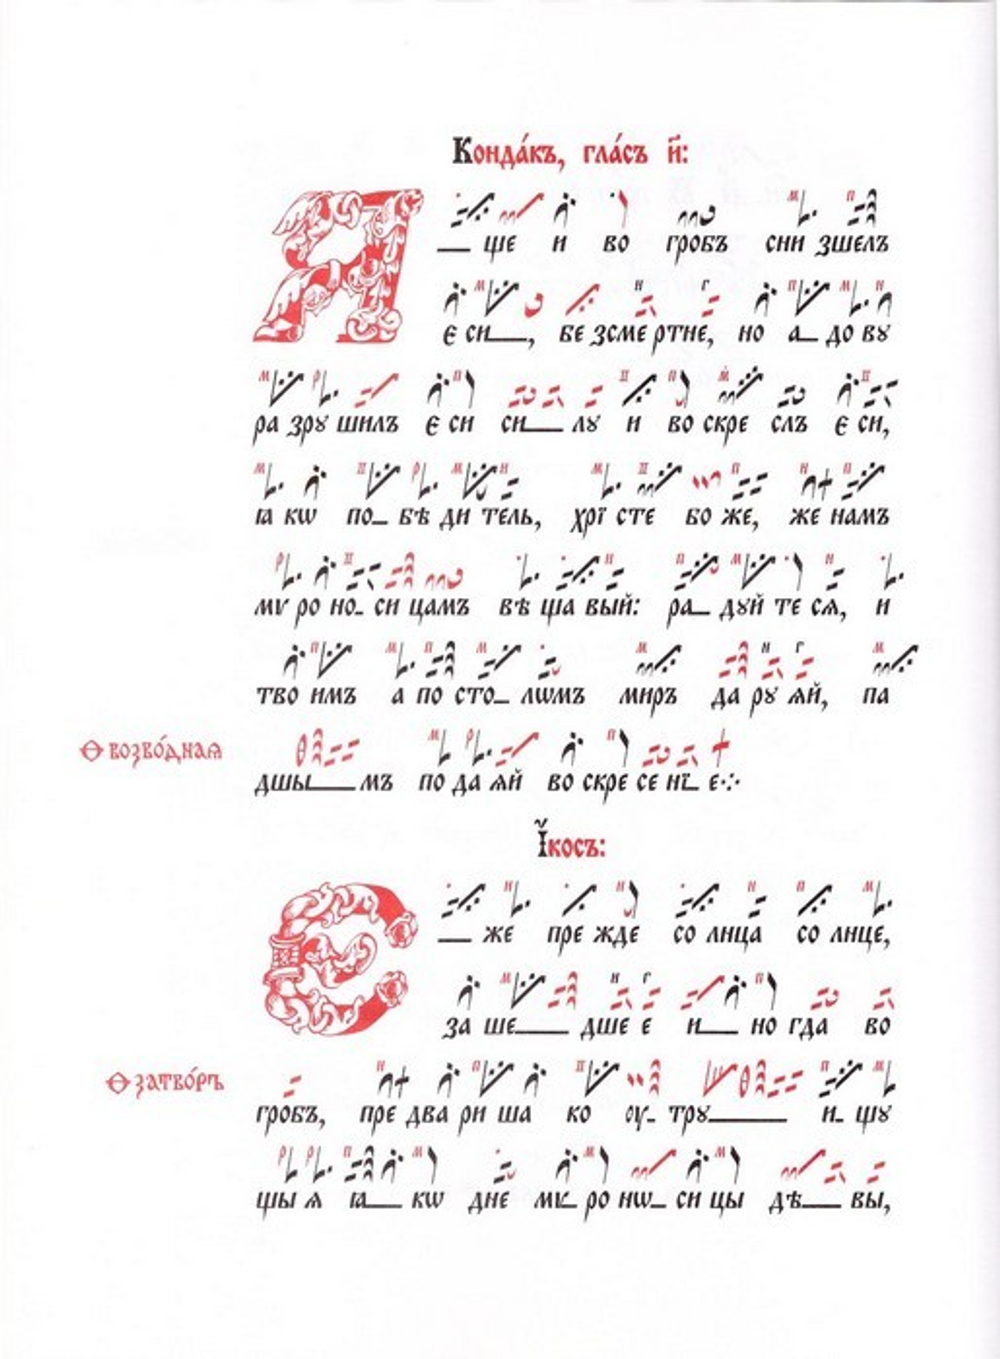 Конда́къ, гла́съ и҃:
А ще и во гробъ сни зшелъ
є си, бе зсме ртне, но а до вꙋ
ра зрꙋ шилъ є си си лꙋ и во скре слъ є си,
ꙗ кѡ по бѣ ди тель, хрі сте бо же, же намъ
мѵ ро но си цамъ вѣ ща вый: ра дꙋй те сѧ, и
тво имъ а по сто лѡмъ миръ да рꙋ ѧй, па
Ѳ возво́днаѧ
дшы мъ по да ѧй во скре се нї е
І҆́косъ:
Є же пре жде со лнца со лнце,
за ше дше е и но гда во
Ѳ затво́ръ
гробъ, пре два ри ша ко оу трꙋ и щꙋ
щы ѧ ꙗ кѡ дне мѵ ро нѡ си цы дѣ вы,